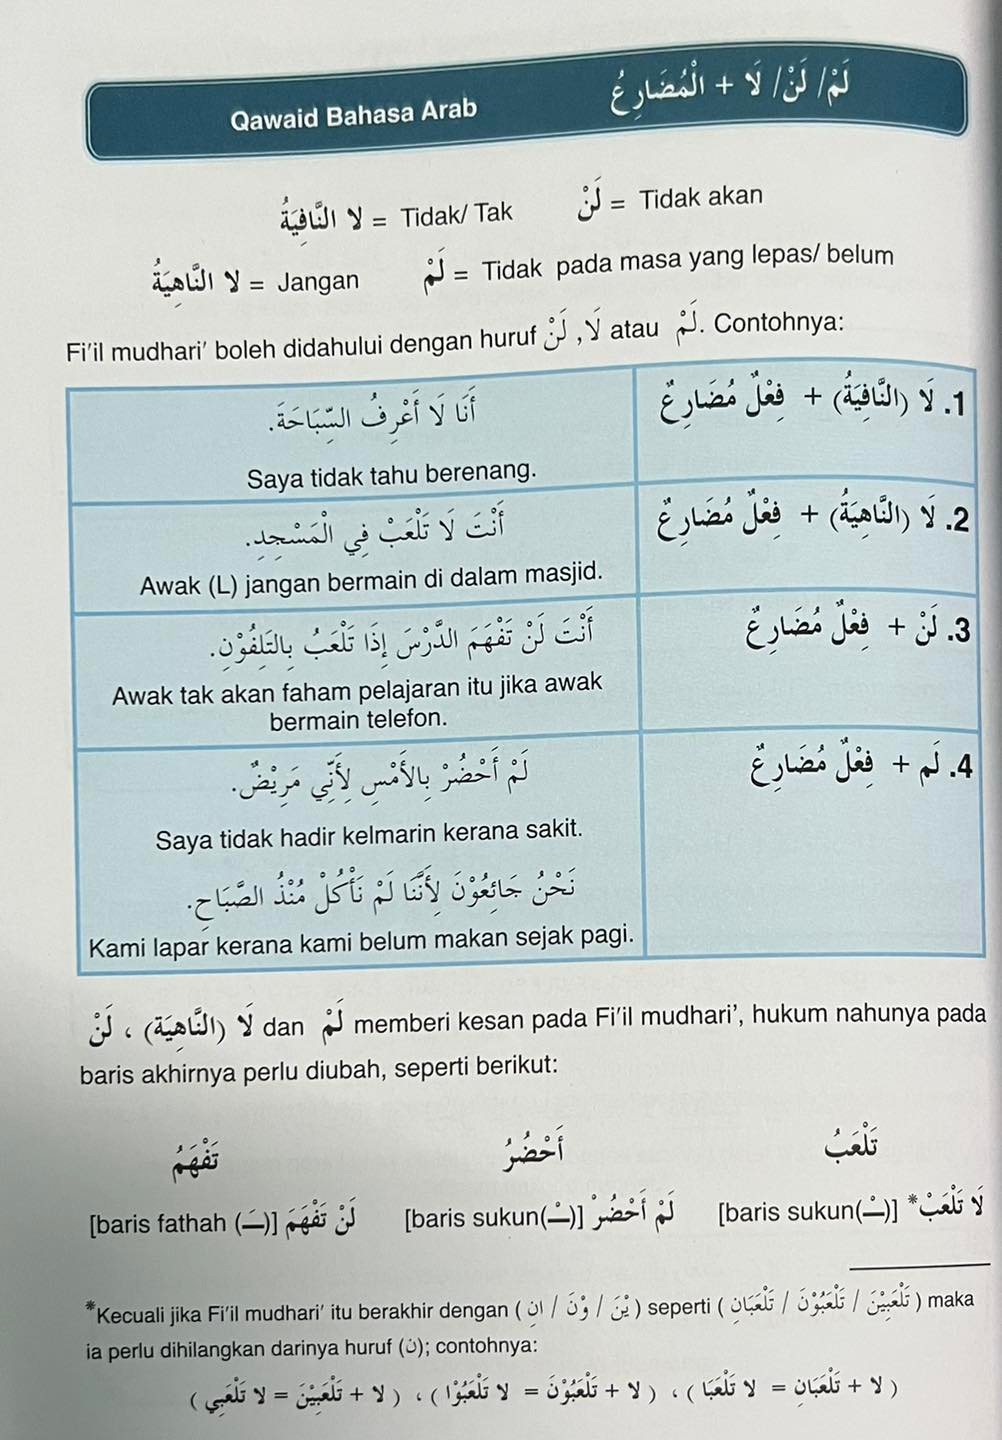 Qawaid Bahasa Arab
لَمْ/ لَنْ/ لَا + الْمُضَارِعُ
لا النَّافِيَةُ = Tidak/ Tak
لَنْ = Tidak akan
لا النَّاهِيَةُ = Jangan
لَمْ = Tidak pada masa yang lepas/ belum
Fi'il mudhari' boleh didahului dengan huruf لَنْ ,لَا atau لَمْ. Contohnya:
1. لَا (النَّافِيَةُ) + فِعْلٌ مُضَارِعٌ
أَنَا لَا أَعْرِفُ السِّبَاحَةَ.
Saya tidak tahu berenang.
2. لَا (النَّاهِيَةُ) + فِعْلٌ مُضَارِعٌ
أَنْتَ لَا تَلْعَبْ فِي الْمَسْجِدِ.
Awak (L) jangan bermain di dalam masjid.
3. لَنْ + فِعْلٌ مُضَارِعٌ
أَنْتَ لَنْ تَفْهَمَ الدَّرْسَ إِذَا تَلْعَبُ بِالتَلِفُوْنِ.
Awak tak akan faham pelajaran itu jika awak
bermain telefon.
4. لَم + فِعْلٌ مُضَارِعٌ
لَمْ أَحْضُرْ بِالأَمْسِ لِأَنِّي مَرِيْضٌ.
Saya tidak hadir kelmarin kerana sakit.
نَحْنُ جَائِعُوْنَ لِأَنَّنَا لَمْ نَأْكُلْ مُنْذُ الصَّبَاحِ.
Kami lapar kerana kami belum makan sejak pagi.
لَنْ ، لَا (النَّاهِيَة) dan لَمْ memberi kesan pada Fi'il mudhari', hukum nahunya pada
baris akhirnya perlu diubah, seperti berikut:
تَفْهَمُ
أَحْضُرُ
تَلْعَبُ
[baris fathah (ـَ)] لَنْ تَفْهَمَ
[baris sukun(ـْ)] لَمْ أَحْضُرْ
[baris sukun(ـْ)] *لَا تَلْعَبْ
*Kecuali jika Fi'il mudhari' itu berakhir dengan ( يْنَ / وْنَ / انِ ) seperti ( تَلْعَبِيْنَ / تَلْعَبُوْنَ / تَلْعَبَانِ ) maka
ia perlu dihilangkan darinya huruf (ن); contohnya:
( لا + تَلْعَبَانِ = لا تَلْعَبَا ) ، ( لا + تَلْعَبُوْنَ = لا تَلْعَبُوْا ) ، ( لا + تَلْعَبِيْنَ = لا تَلْعَبِي )